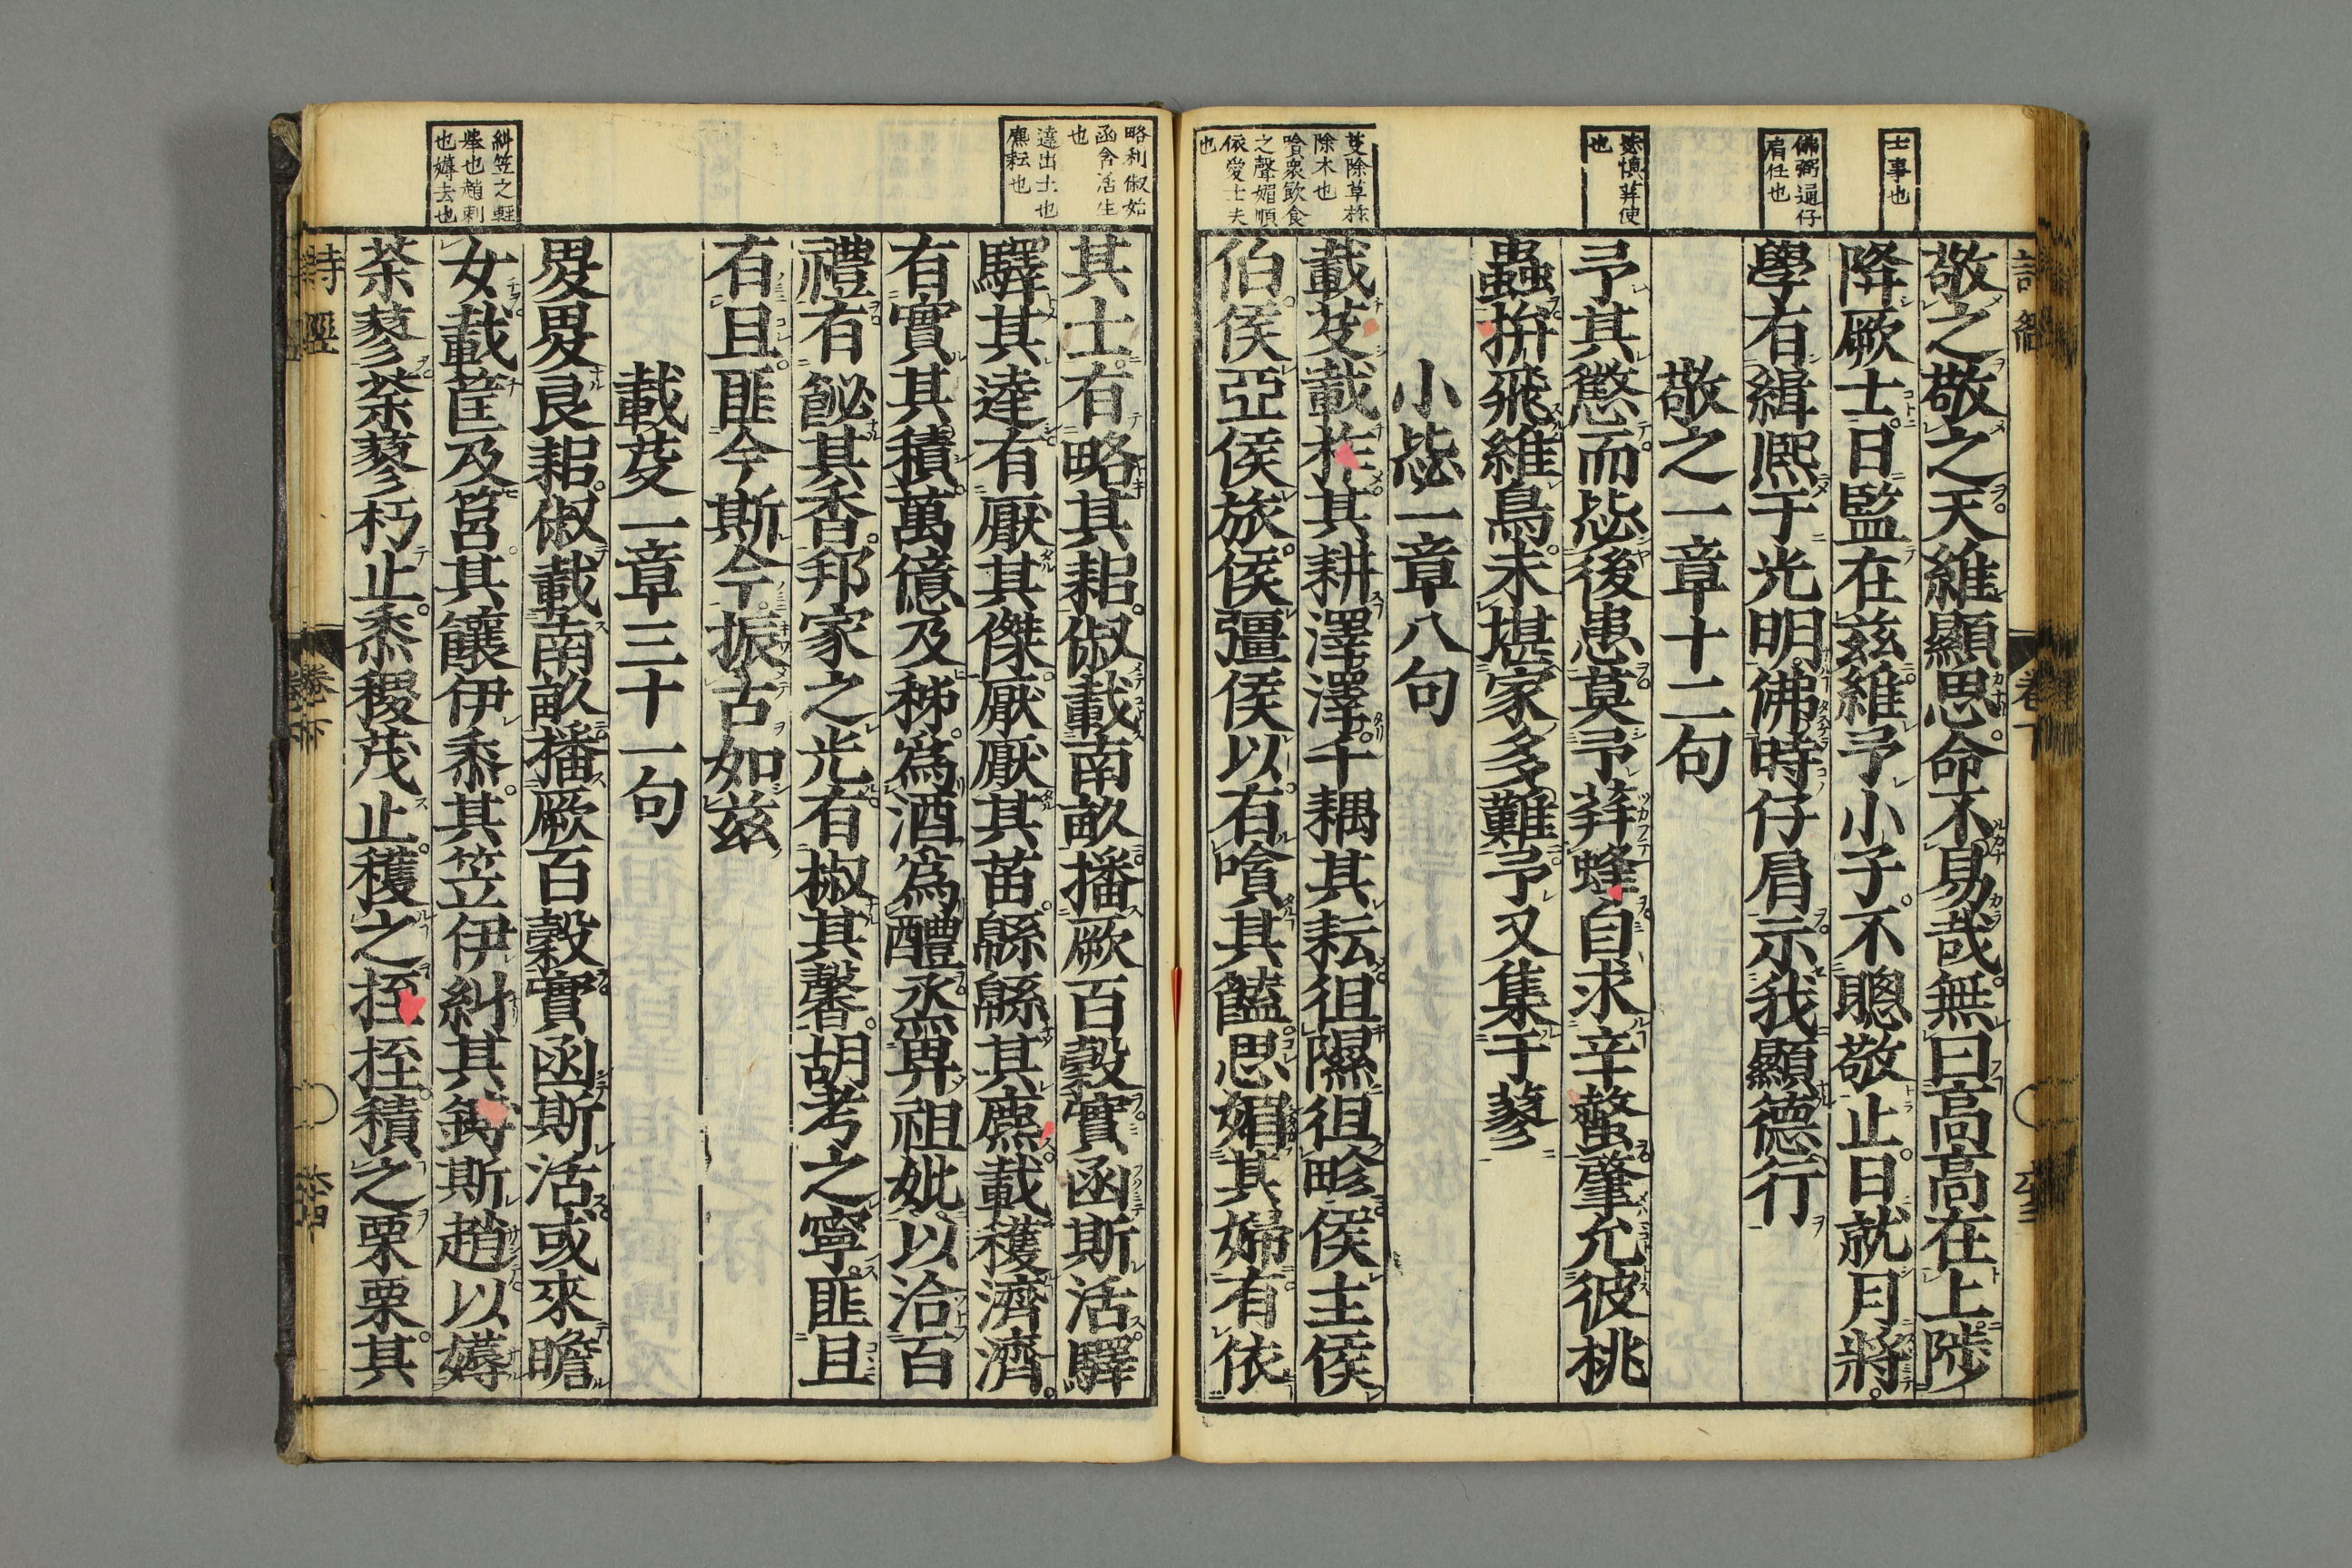 士事也
佛弼通仔
肩任也
毖慎荓使
也
芟除草柞
除木也
喰衆飲食
之聲媚順
依愛士夫
也
敬之敬之天維顯思命不易哉無曰高高在上陟
降厥士日監在茲維予小子不聰敬止日就月將
學有緝熙于光明佛時仔肩示我顯德行
敬之一章十二句
予其懲而毖後患莫予荓蜂自求辛螫肇允彼桃
蟲拚飛維鳥未堪家多難予又集于蓼
小毖一章八句
載芟載柞其耕澤澤千耦其耘徂隰徂畛侯主侯
伯侯亞侯旅侯彊侯以有喰其饁思媚其婦有依
略利俶始
函含活生
也
達出土也
麃耘也
糾笠之輕
舉也趙刺
也薅去也
其士有略其耜俶載南畝播厥百穀實函斯活驛
驛其達有厭其傑厭厭其苗緜緜其麃載穫濟濟
有實其積萬億及秭為酒為醴烝畀祖妣以洽百
禮有飶其香邦家之光有椒其馨胡考之寧匪且
有且匪今斯今振古如茲
載芟一章三十一句
畟畟良耜俶載南畝播厥百穀實函斯活或來瞻
女載筐及筥其饟伊黍其笠伊糾其鎛斯趙以薅
荼蓼荼蓼朽止黍稷茂止穫之挃挃積之栗栗其
詩經